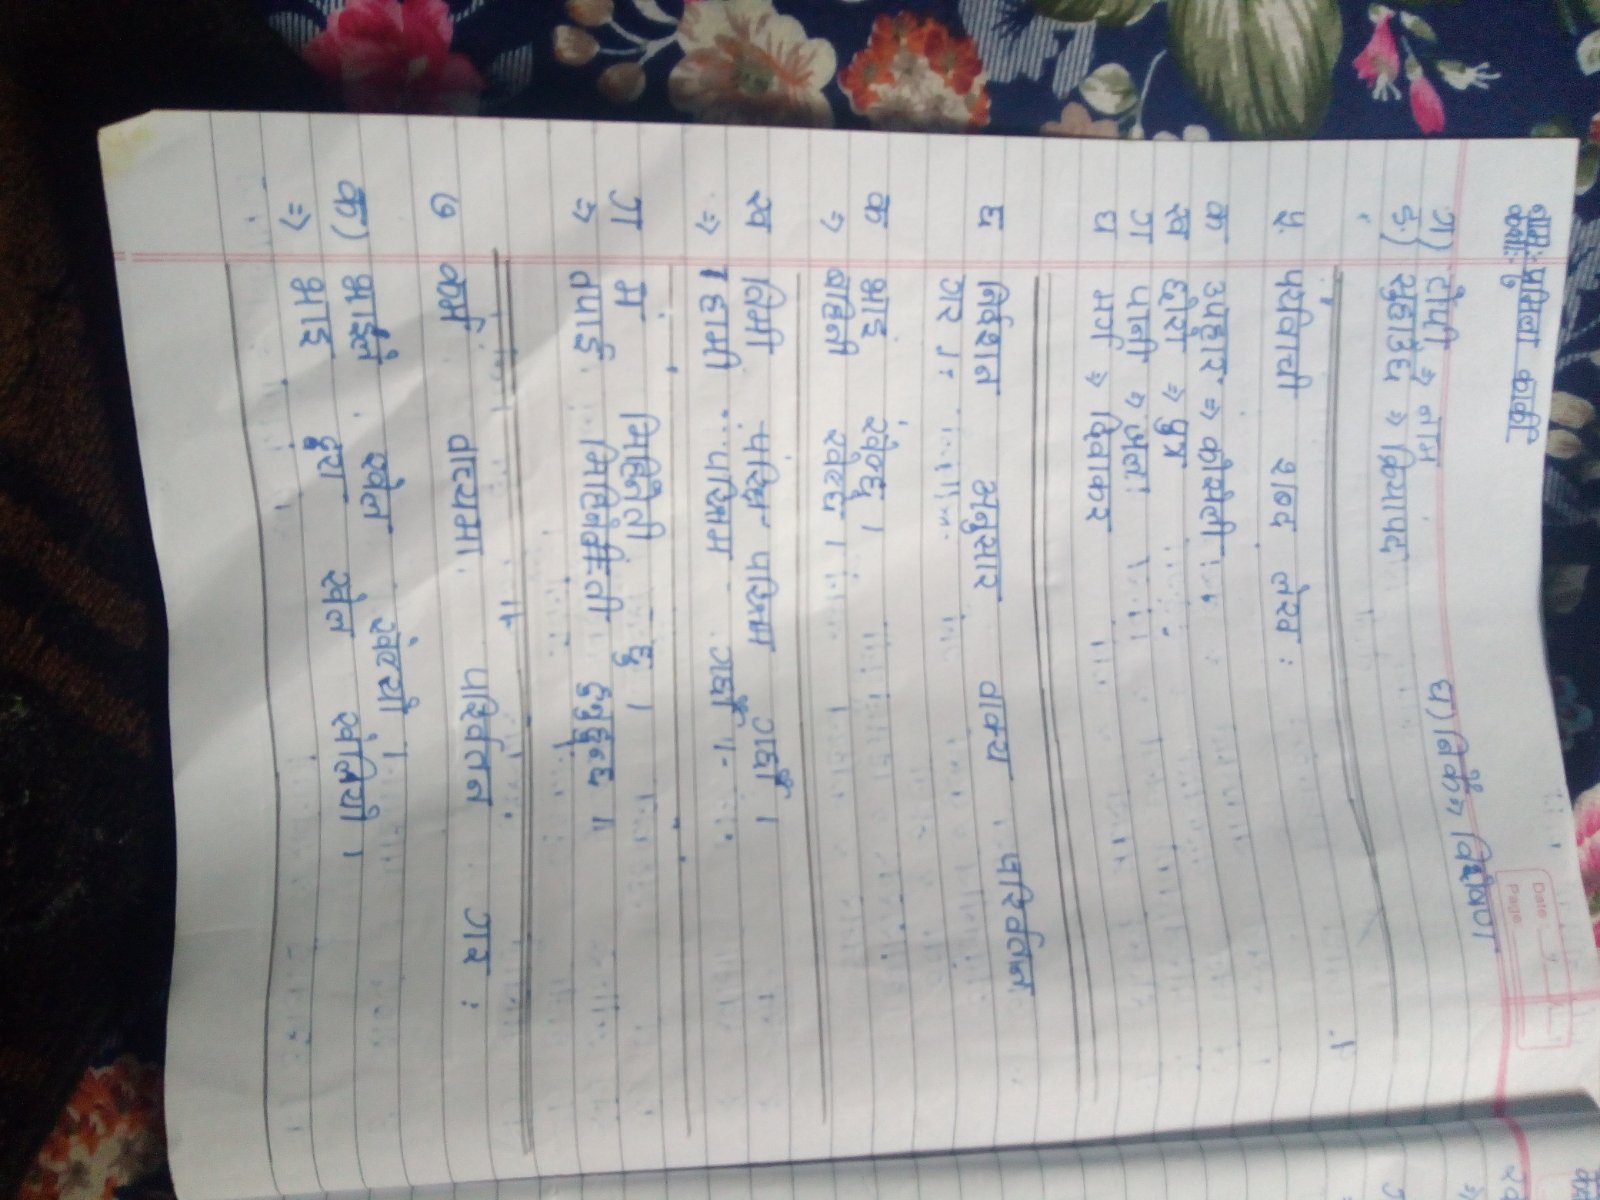 नाम: प्रमिला कार्की
कक्षा: ७
Date:
Page:
ग) टोपी ⇒ नाम घ) निकै ⇒ विशेषण
ङ) सुहाउँछ ⇒ क्रियापद
५. पर्यायवाची शब्द लेख :
क उपहार ⇒ कोशेली
ख छोरा ⇒ पुत्र
ग पानी ⇒ जल
घ भर्ग ⇒ दिवाकर
६ निर्देशन अनुसार वाक्य परिवर्तन
गर ।:
क भाइ खेल्छ ।
⇒ बहिनी खेल्छ ।
ख तिमी परिश्रम गर्छौ ।
⇒ हामी परिश्रम गर्छौँ ।
ग म मिहिनेती छु ।
⇒ तपाईं मिहिनेती हुनुहुन्छ ।
७ कर्म वाच्यमा परिर्वतन गर :
क) भाईले खेल खेल्यो ।
⇒ भाइ द्वारा खेल खेलियो ।